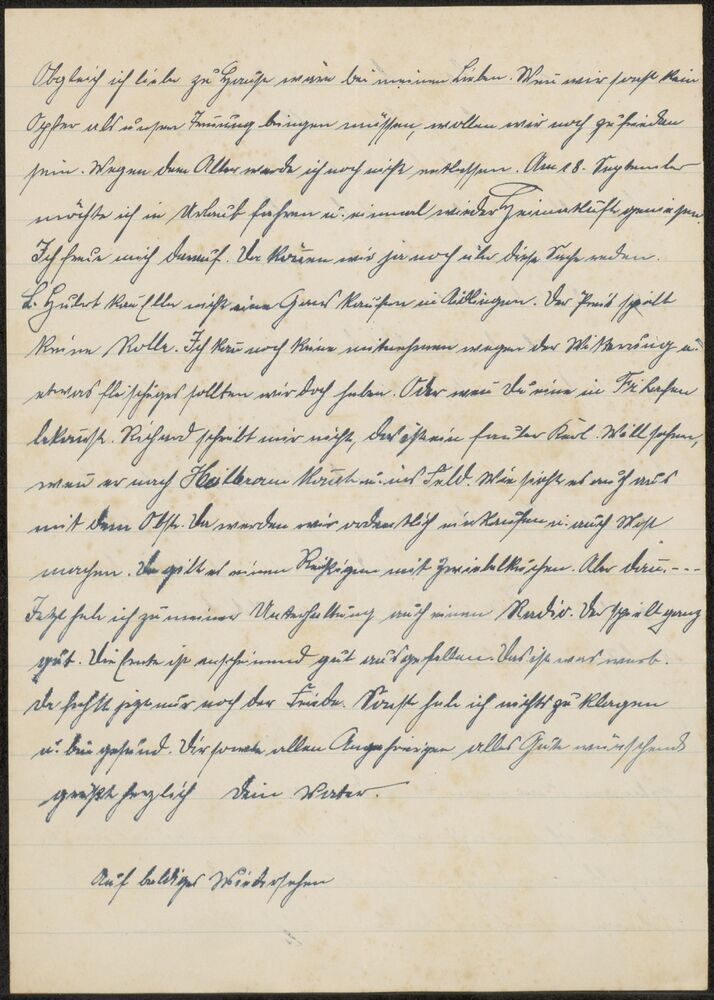 Obgleich ich lieber zu Hause wäre bei meinen Lieben. Wen̄ wir sonst kein
Opfer als unsere Trennung bringen müssen, wollen wir noch zufrieden
sein. Wegen dem Alter werde ich noch nicht entlassen. Am 18. September
möchte ich in Urlaub fahren u. einmal wieder Heimatluft geniesen.
Ich freue mich darauf. Da kön̄en wir ja noch über diese Sache reden.
L. Hulert kan̄ Elle nicht eine Gans kaufen in Aidlingen. Der Preis spielt
keine Rolle. Ich kan̄ noch keine mitnehmen wegen der Witterung u.
etwas fleischiges sollten wir doch haben. Oder wen̄ Du eine in
bekom̄st. Richard schreibt mir nicht, das ist ein fauler Kerl. Will sehen,
wen̄ er nach Heilbron̄ kom̄t u. ins Feld. Wie sieht es auch aus
mit dem Obst. Da werden wir ordentlich einkaufen u. auch Most
machen. Da gilt es einen Reihigen mit Zwiebelkuchen. Aber dan̄. - - -
Jetzt habe ich zu meiner Unterhaltung auch einen Radio. Der spielt ganz
gut. Die Ernte ist anscheinend gut ausgefallen. Das ist was wert.
Da fehlt jetzt nur noch der Friede. Sonst habe ich nichts zu klagen
u. bin gesund. Dir sowie allen Angehörigen alles Gute wünschend
grüßt herzlich Dein Vater.
Auf baldiges Wiedersehen